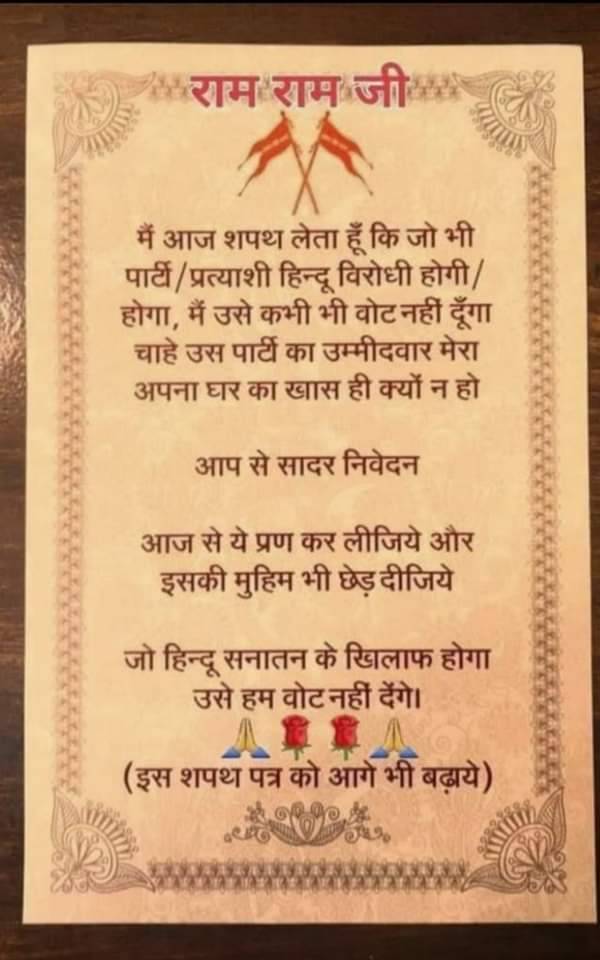 राम राम जी
मैं आज शपथ लेता हूँ कि जो भी
पार्टी/प्रत्याशी हिन्दू विरोधी होगी/
होगा, मैं उसे कभी भी वोट नहीं दूँगा
चाहे उस पार्टी का उम्मीदवार मेरा
अपना घर का खास ही क्यों न हो
आप से सादर निवेदन
आज से ये प्रण कर लीजिये और
इसकी मुहिम भी छेड़ दीजिये
जो हिन्दू सनातन के खिलाफ होगा
उसे हम वोट नहीं देंगे।
🙏🌹🌹🙏
(इस शपथ पत्र को आगे भी बढ़ाये)